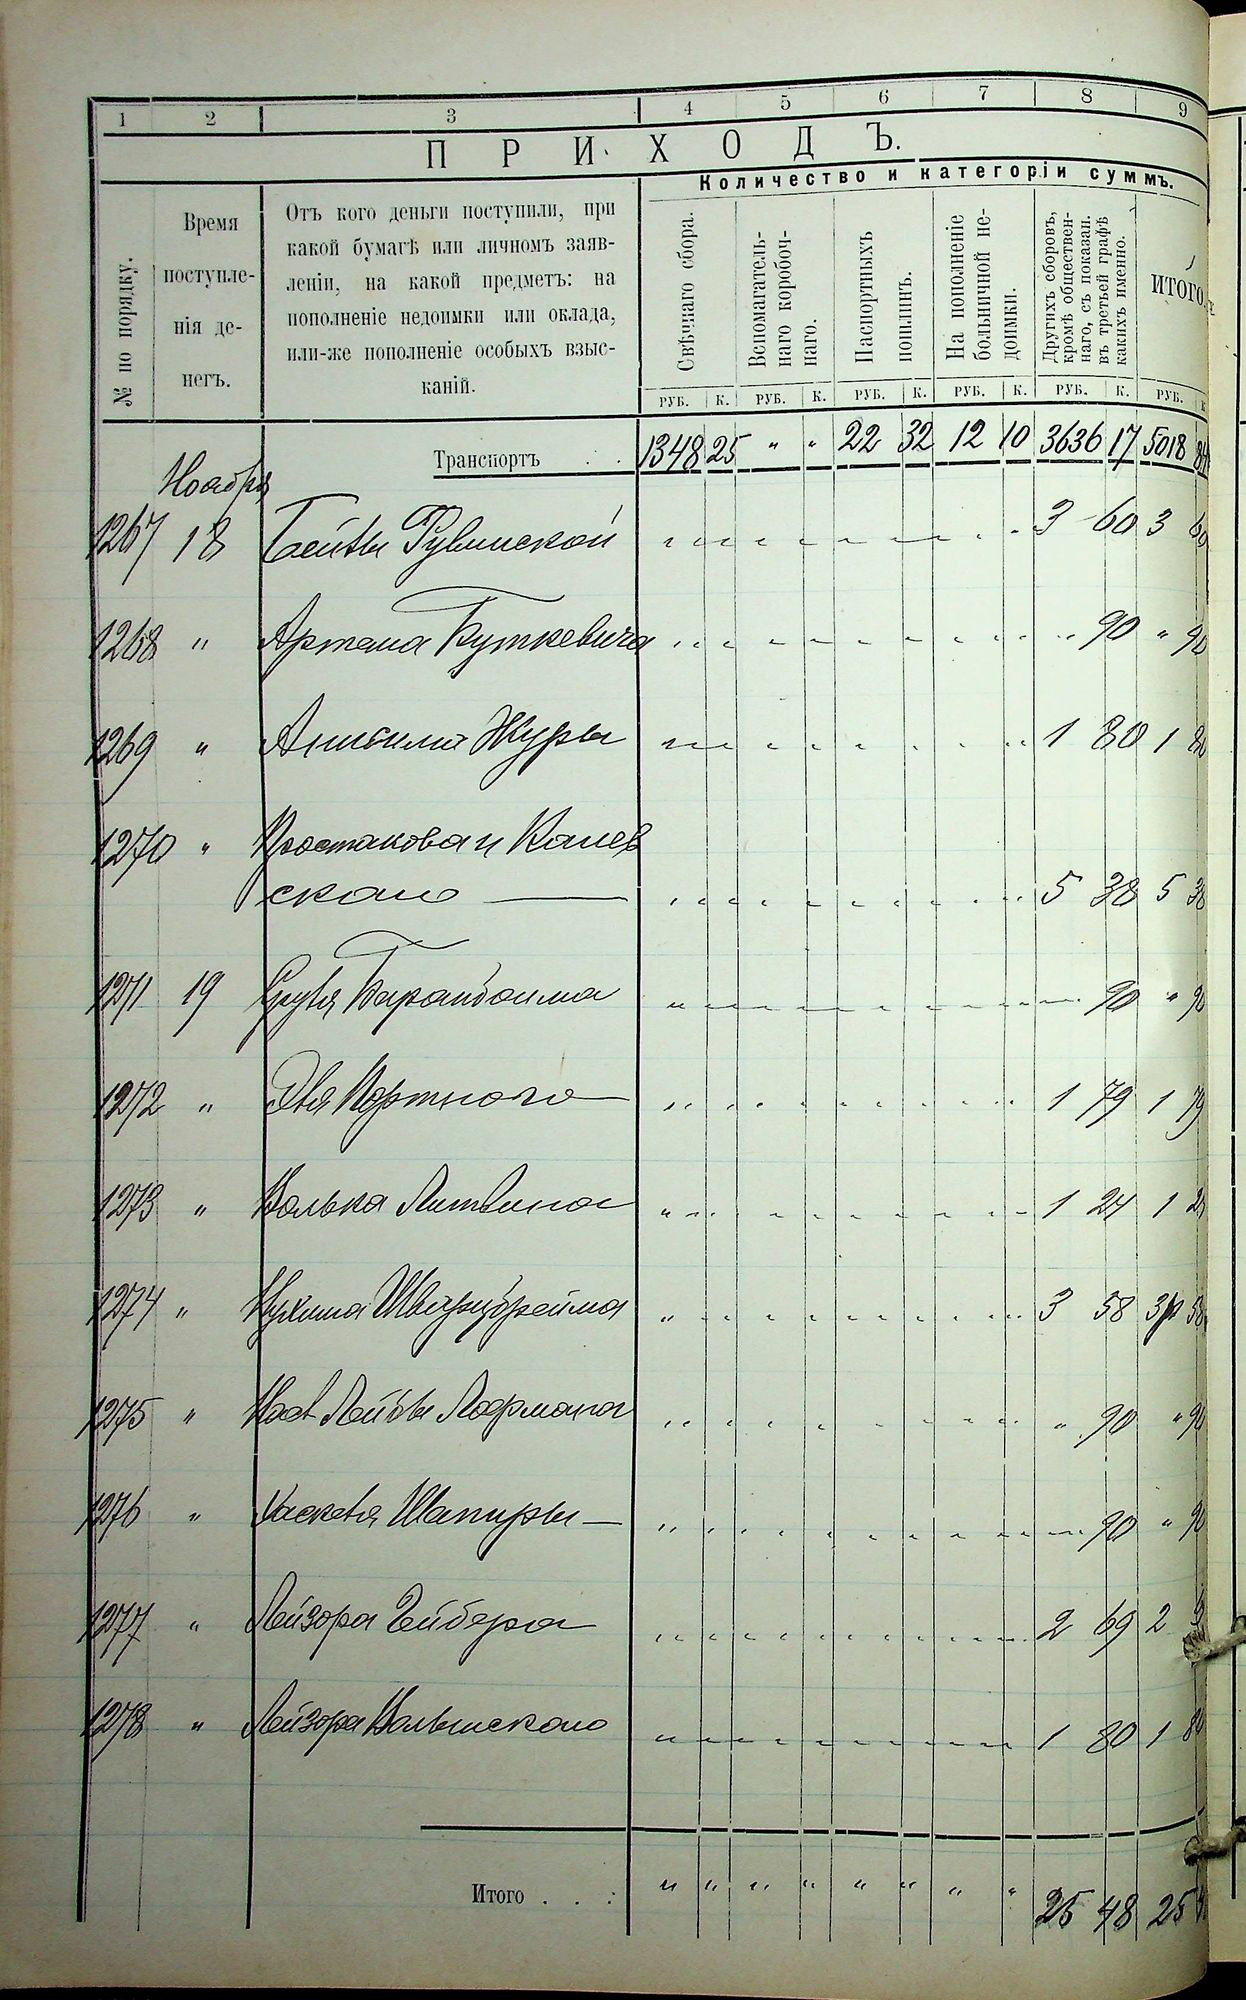 1 2 3 4 5 6 7 8 9
ПРИХОДЪ.
Количество и категоріи суммъ.
№ по порядку.
Время поступле-
нія де-
негъ.
Отъ кого деньги поступили, при
какой бумагѣ или личномъ заяв-
леніи, на какой предметъ: на
пополненіе недоимки или оклада,
или-же пополненіе особыхъ взыс-
каній.
Свѣчнаго сбора.
Вспомагатель-
наго коробоч-
наго.
Паспортныхъ
пошлинъ.
На пополненіе
больничной не-
доимки.
Другихъ сборовъ,
кромѣ обществен-
наго, съ показан.
въ третьей графѣ
какихъ именно.
ИТОГО.
РУБ. К. РУБ. К. РУБ. К. РУБ. К. РУБ. К. РУБ. К
Транспортъ . . 1348 25 " " 22 32 12 10 3636 17 5018 84
Ноября
1267 18 Бейты Рувинской 3 60 3 60
1268 " Артема Буткевича " 90 " 90
1269 " Журы 1 80 1 80
1270 " Простакова и Калев
скаго 5 38 5 38
1271 19 90 " 90
1272 " Портного 1 79 1 79
1273 " Волька Литвина 1 24 1 24
1274 " Нухима 3 58 3 58
1275 " Лейбы Лофмана " 90 " 90
1276 " Хаскеля Шапиры 90 " 90
1277 " Лейзора Гейбера 2 69 2
1278 " Лейзора Вольинскаго 1 80 1 80
Итого . . : " " " " " " " " 25 48 25